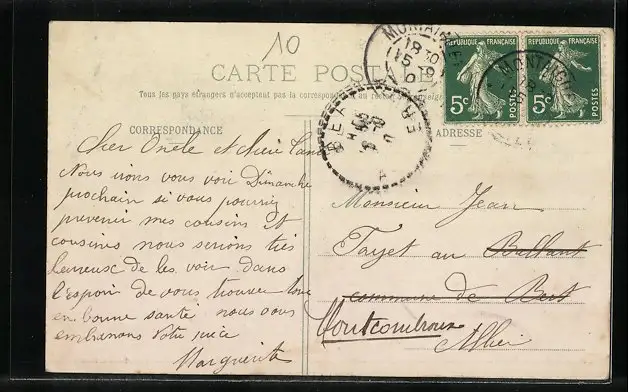 10
CARTE POSTALE
Tous les pays étrangers n'acceptent pas la correspondance au recto
CORRESPONDANCE
ADRESSE
RÉPUBLIQUE FRANÇAISE
5c
POSTES
RÉPUBLIQUE FRANÇAISE
5c
POSTES
Cher Oncle et chère Tante
Nous irons vous voir Dimanche
prochain si vous pourriez
prevenir mes cousins et
cousines nous serions très
heureuse de les voir dans
l'espoir de vous trouver tous
en bonne santé nous vous
embrassons Votre nièce
Marguerite
Monsieur Jean
Tayet au Ballant
commune de Bert
Montcombroux
Allier